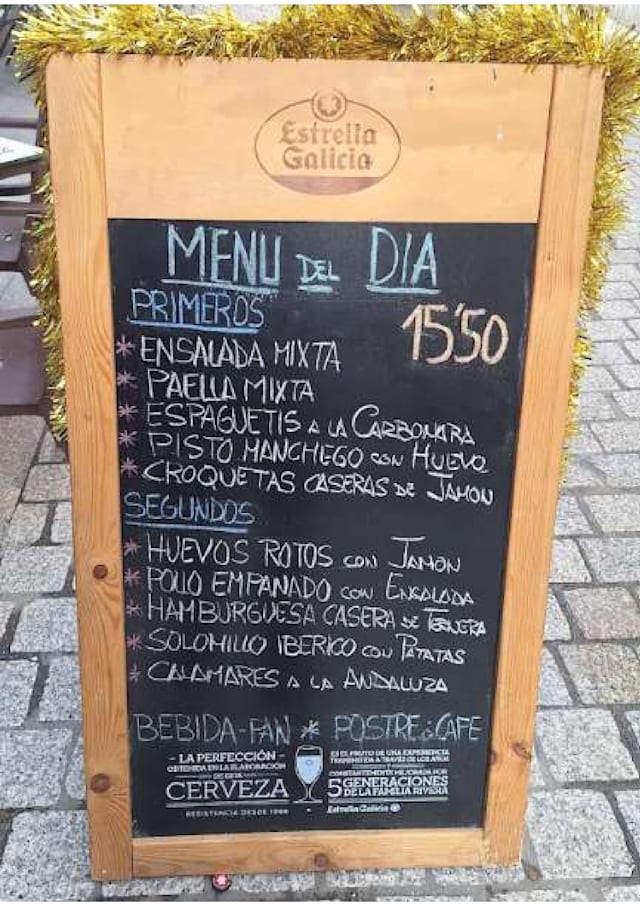 Estrella
Galicia
MENU DEL DIA
PRIMEROS
15'50
* ENSALADA MIXTA
* PAELLA MIXTA
* ESPAGUETIS A LA CARBONARA
* PISTO MANCHEGO CON HUEVO
* CROQUETAS CASERAS DE JAMON
SEGUNDOS
* HUEVOS ROTOS CON JAMON
* POLLO EMPANADO CON ENSALADA
* HAMBURGUESA CASERA DE TERNERA
* SOLOMILLO IBERICO CON PATATAS
* CALAMARES A LA ANDALUZA
BEBIDA-PAN * POSTRE ó CAFE
- LA PERFECCIÓN -
OBTENIDA EN LA ELABORACIÓN
DE ESTA
CERVEZA
RESISTENCIA DESDE 1906
ES EL FRUTO DE UNA EXPERIENCIA
TRANSMITIDA A TRAVÉS DE LOS AÑOS
CONSTANTEMENTE MEJORADA POR
5 GENERACIONES
DE LA FAMILIA RIVERA
Estrella Galicia